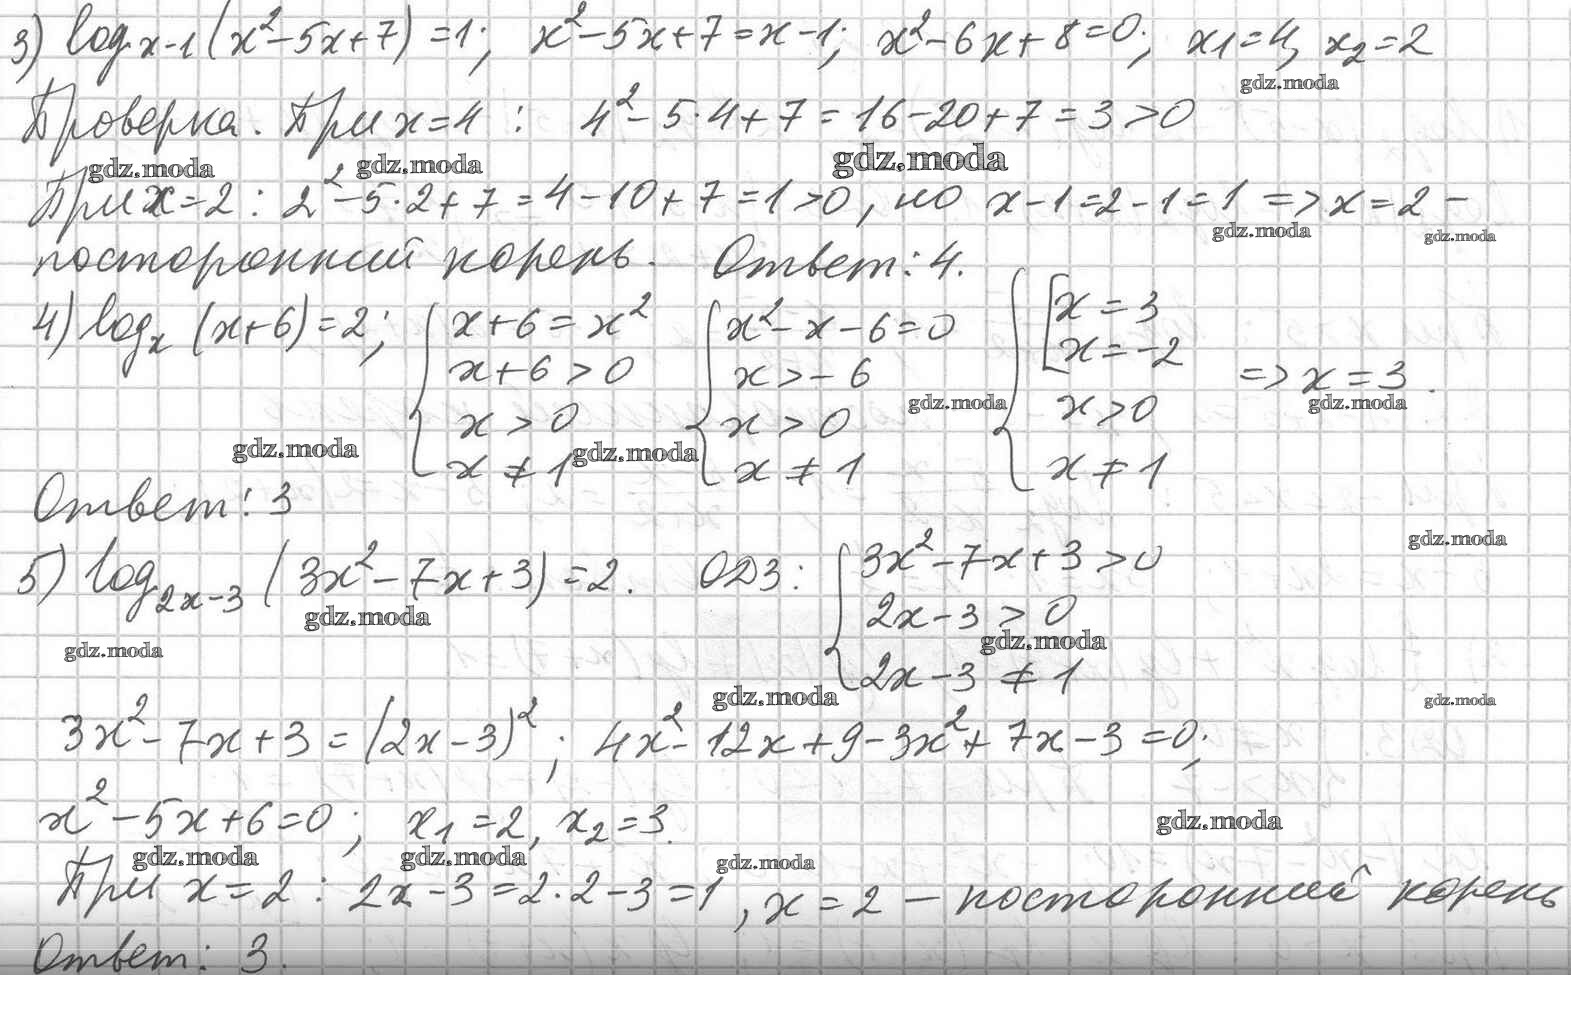 3) log x-1 (x²-5x+7)=1; x²-5x+7=x-1; x²-6x+8=0; x1=4, x2=2
gdz.moda
Проверка. При x=4 : 4²-5·4+7=16-20+7=3>0
gdz.moda gdz.moda gdz.moda
При x=2 : 2²-5·2+7=4-10+7=1>0, но x-1=2-1=1 => x=2 -
gdz.moda gdz.moda
посторонний корень. Ответ: 4.
4) logx (x+6)=2; { x+6=x² { x²-x-6=0 { [ x=3
x+6>0 x>-6 x=-2 => x=3.
gdz.moda gdz.moda
x>0 x>0 x>0
gdz.moda gdz.moda
x≠1 x≠1 x≠1
Ответ: 3
gdz.moda
5) log2x-3 (3x²-7x+3)=2. ОДЗ: { 3x²-7x+3>0
gdz.moda
2x-3>0
gdz.moda gdz.moda
2x-3≠1
gdz.moda gdz.moda
3x²-7x+3=(2x-3)²; 4x²-12x+9-3x²+7x-3=0;
x²-5x+6=0; x1=2, x2=3.
gdz.moda
gdz.moda gdz.moda gdz.moda
При x=2 : 2x-3=2·2-3=1, x=2 - посторонний корень
Ответ: 3.